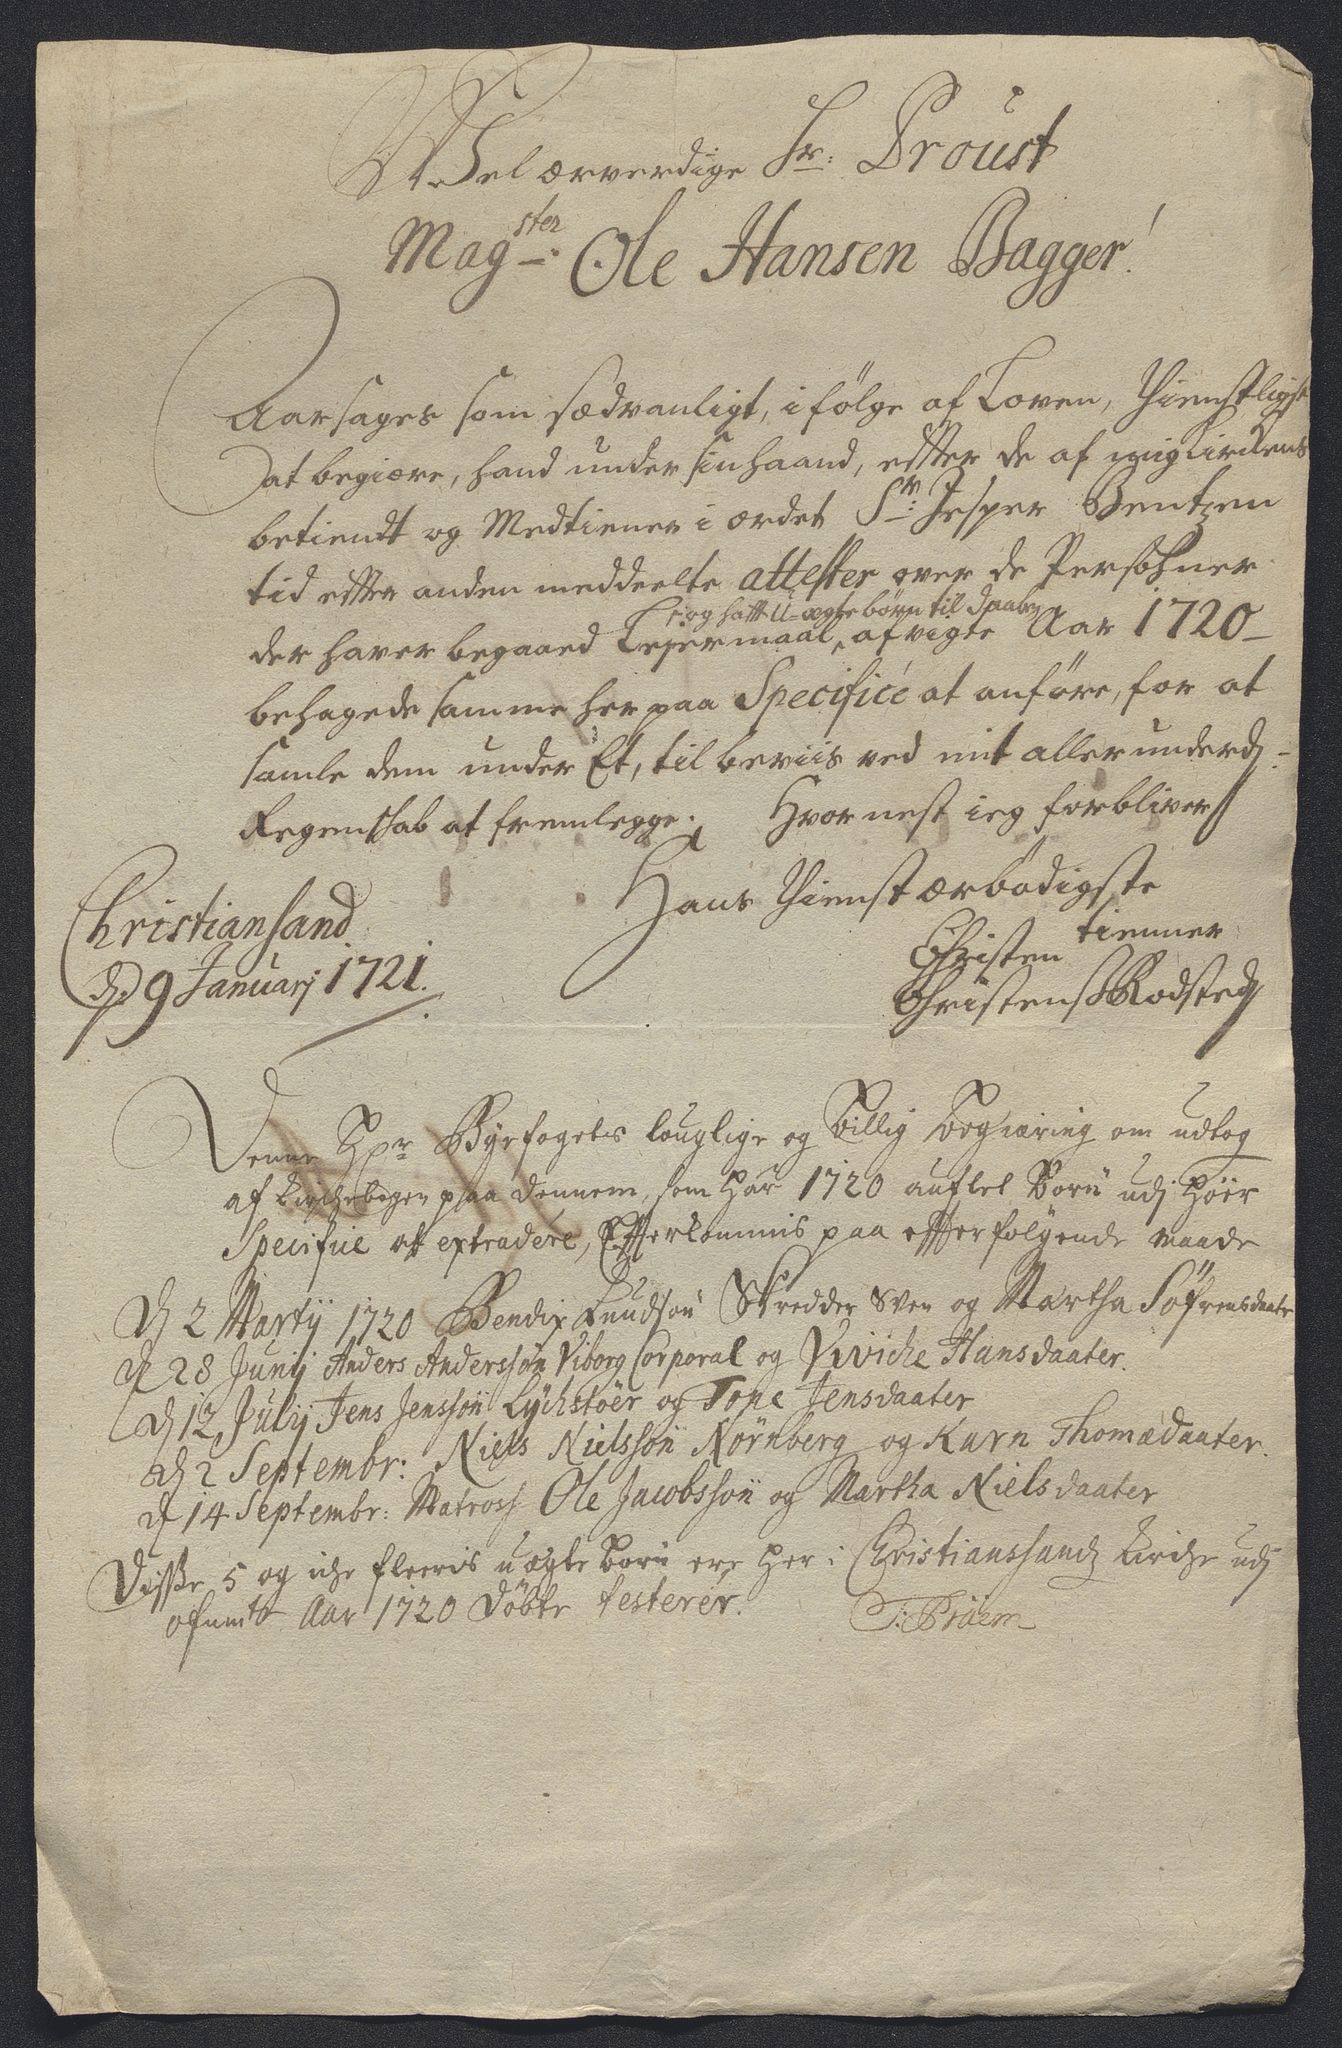 Welærverdige Hr: Proust
Magster: Ole Hansen Bagger!
Aarsages som sædvanligt, i følge af Loven, thienstligst
at begiære, hand under sin haand, effter de af mig Kirckens
betiendt og Medtiener i ordet Sr: Jesper Bentzen
tid effter anden meddeelte attester over de Persohner
og hafft U-ægte børn til daaben
der haver begaaed Leyermaal, afvigte Aar 1720
behagede samme her paa Specificé at anføre, for at
samle dem under Et, til beviis ved mit allerunderd:
Regenskab at fremlegge. Hvornest ieg forbliver
Hans thienstærbødigste
tienner
Christen
Christens Rodsted
Christiansand
d 9 Januarj 1721.
Denne Hr Byefogets louglige og billig begiæring om udtog
af Kirchebogen paa dennem, som har 1720 auflet Børn udj Hoer
Specifice att extradere, Efterkommis paa effterfølgende maade
d 2 Martij 1720 Bendix Knudsøn Skredder Sven og Martha Søfrensdaater
d 28 Junij Anders Anderssøn Viborg Corporal og Viviche Hansdaater.
d 12 Julij Jens Jenssøn Lychstøer og Tone Jensdaater
d 2 Septembr: Niels Nielssøn Nørnberg og Karn Thomædaater.
d 14 Septembr: Matross Ole Jacobssøn og Martha Nielsdaater
Disse 5 og iche fleeris uægte børn ere her i Christianssandz Kirche udj
ofnmte Aar 1720 døbte testerer.